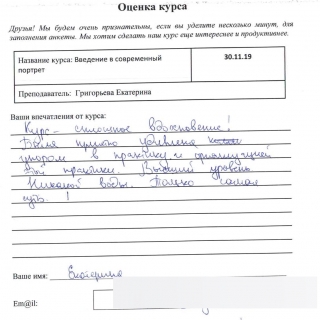 Оценка курса
Друзья! Мы будем очень признательны, если вы уделите несколько минут, для
заполнения анкеты. Мы хотим сделать наш курс еще интереснее и продуктивнее.
Название курса: Введение в современный
портрет
30.11.19
Преподаватель: Григорьева Екатерина
Ваши впечатления от курса:
Курс - сплошное вдохновение!
Была приятно удивлена
упором в практику, и
практики. Высший уровень.
Никакой воды. Только самая
суть!
Ваше имя: Екатерина
Em@il: